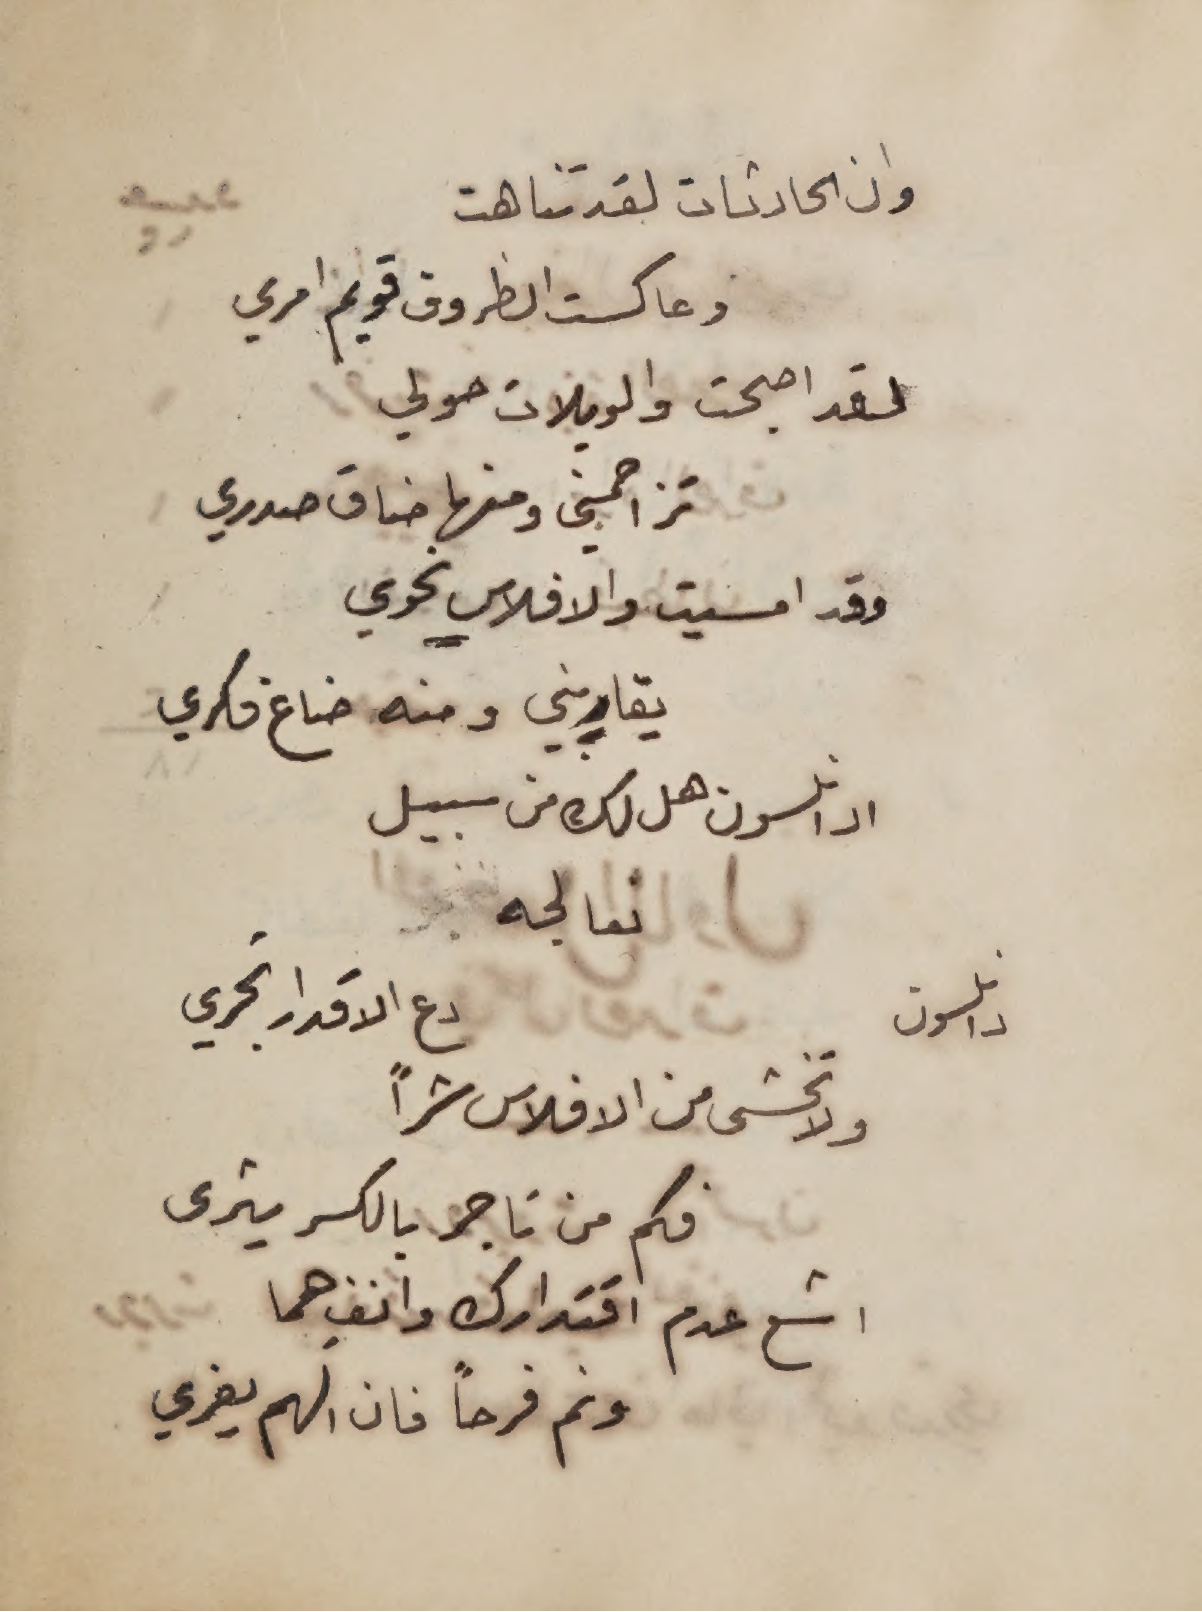 وان الحادثات لقد تناهت
وعاكست الظروف قويم امري
لقد اصبحت والويلات حولي
تزاحمني ومنها ضاق صدري
وقد امسيت والافلاس نحوي
يقاربني ومنه ضاع فكري
الدانلسون هل لك من سبيل
نعالجه
دانلسون دع الاقدار تجري
ولا تخشى من الافلاس شراً
فكم من تاجر بالكسر يثرى
اشع عدم اقتدارك وانفِ هما
ونم فرحاً فان الهم يفري